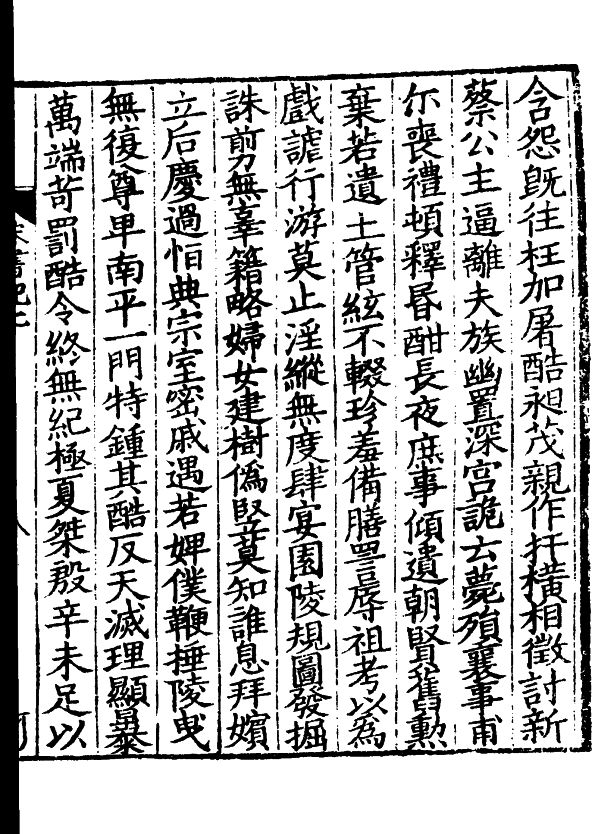 含怨既往枉加屠酷昶茂親作扞橫相徵討新
蔡公主逼離夫族幽置深宮詭云薨殞襄事甫
尓喪禮頓釋昬酣長夜庶事傾遺朝賢舊勲
棄若遺土管絃不輟珍羞備膳詈辱祖考以為
戲謔行游莫止淫縱無度肆宴園陵規圖發掘
誅剪無辜籍略婦女建樹偽竪莫知誰息拜嬪
立后慶過恒典宗室密戚遇若婢僕鞭捶陵曳
無復尊卑南平一門特鍾其酷反天滅理顯暴
萬端苛罰酷令終無紀極夏桀殷辛未足以